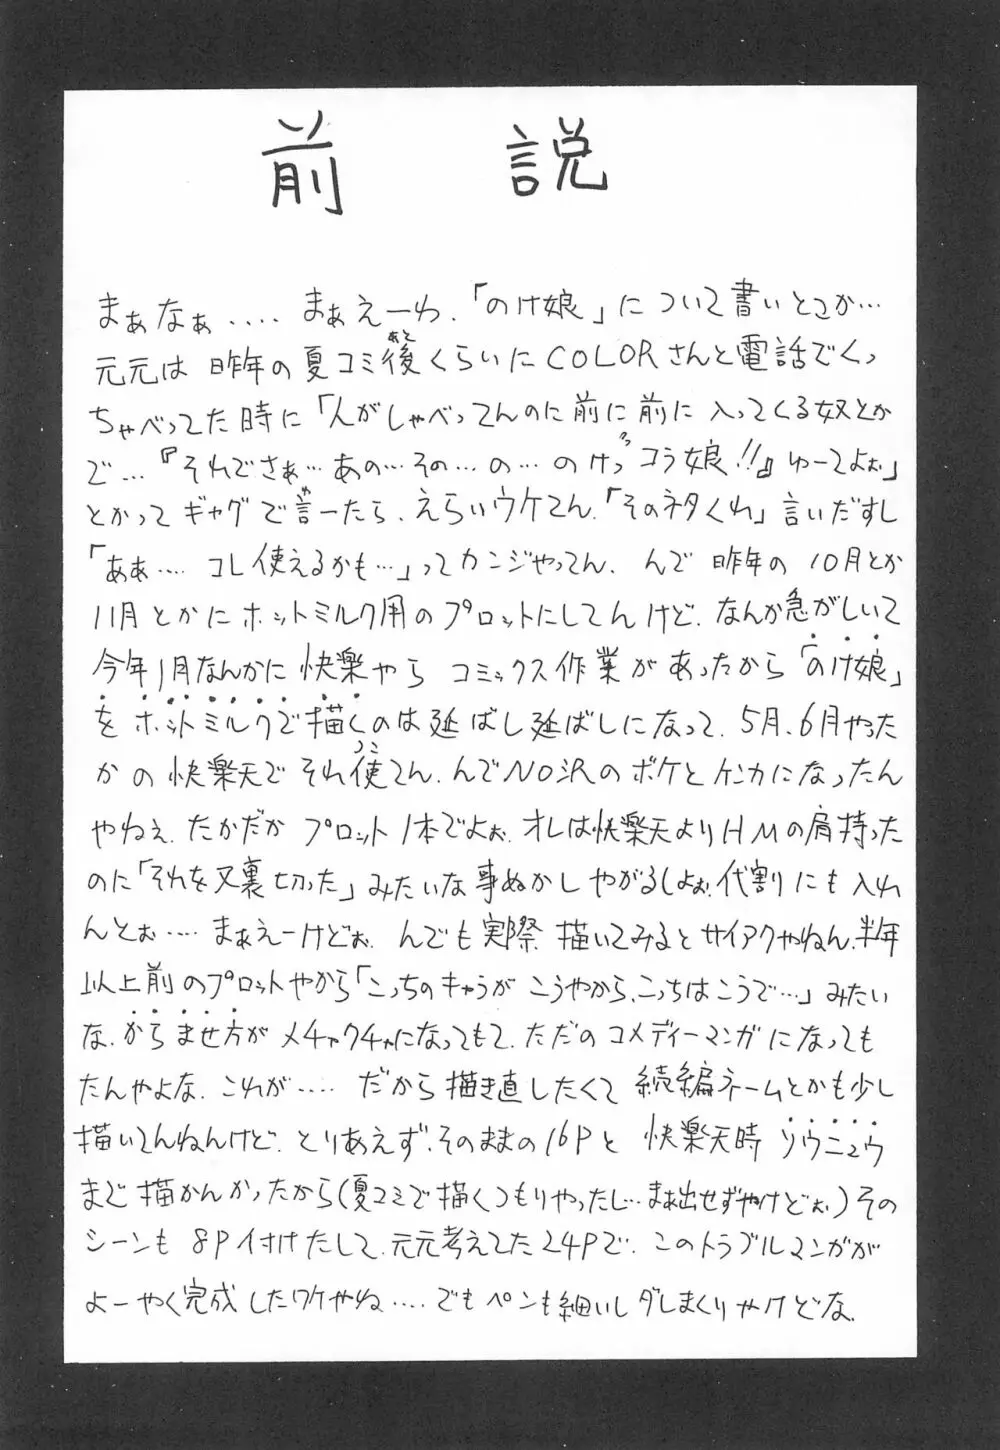 前説
まぁなぁ.... まぁえーわ.「のけ娘」について書いとこか…
元元は 昨年の夏コミ後(あと)くらいにCOLORさんと電話でくっ
ちゃべってた時に「人がしゃべってんのに前に前に入ってくる奴とか
で…『それでさぁ…あの…その…の…のけっコラ娘!!』ゆーてよぉ」
とかってギャグで言(や)ーたら、えらいウケてん.「そのネタくれ」言いだすし
「ああ.... コレ使えるかも…」ってカンジやってん. んで昨年の10月とか
11月とかにホットミルク用のプロットにしてんけど. なんか急がしいて
今年1月なんかに快楽やら コミックス作業があったから「のけ娘」
をホットミルクで描くのは延ばし延ばしになって. 5月、6月やった
かの快楽天でそれ使(つこ)てん. んでNO沢のボケとケンカになったん
やねぇ. たかだかプロット1本でよぉ. オレは快楽天よりHMの肩持った
のに「それを又裏切った」みたいな事ぬかしやがるしよぉ. 代割にも入れ
んとぉ.... まぁえーけどぉ. んでも実際 描いてみるとサイアクやねん. 半年
以上前のプロットやから「こっちのキャラが こうやから、こっちはこうで…」みたい
な. からませ方がメチャクチャになってもて. ただのコメディーマンガになっても
たんやよな. これが.... だから描き直したくて 続編ネームとかも少し
描いてんねんけど. とりあえず、そのままの16Pと 快楽天時ソウニュウ
まで描かんかったから(夏コミで描くつもりやったし…まぁ出せずやけどぉ.)その
シーンも8P付けたして. 元元考えてた24Pで. このトラブルマンガが
よーやく完成したワケやね.... でもペンも細いしダしまくりやけどな.